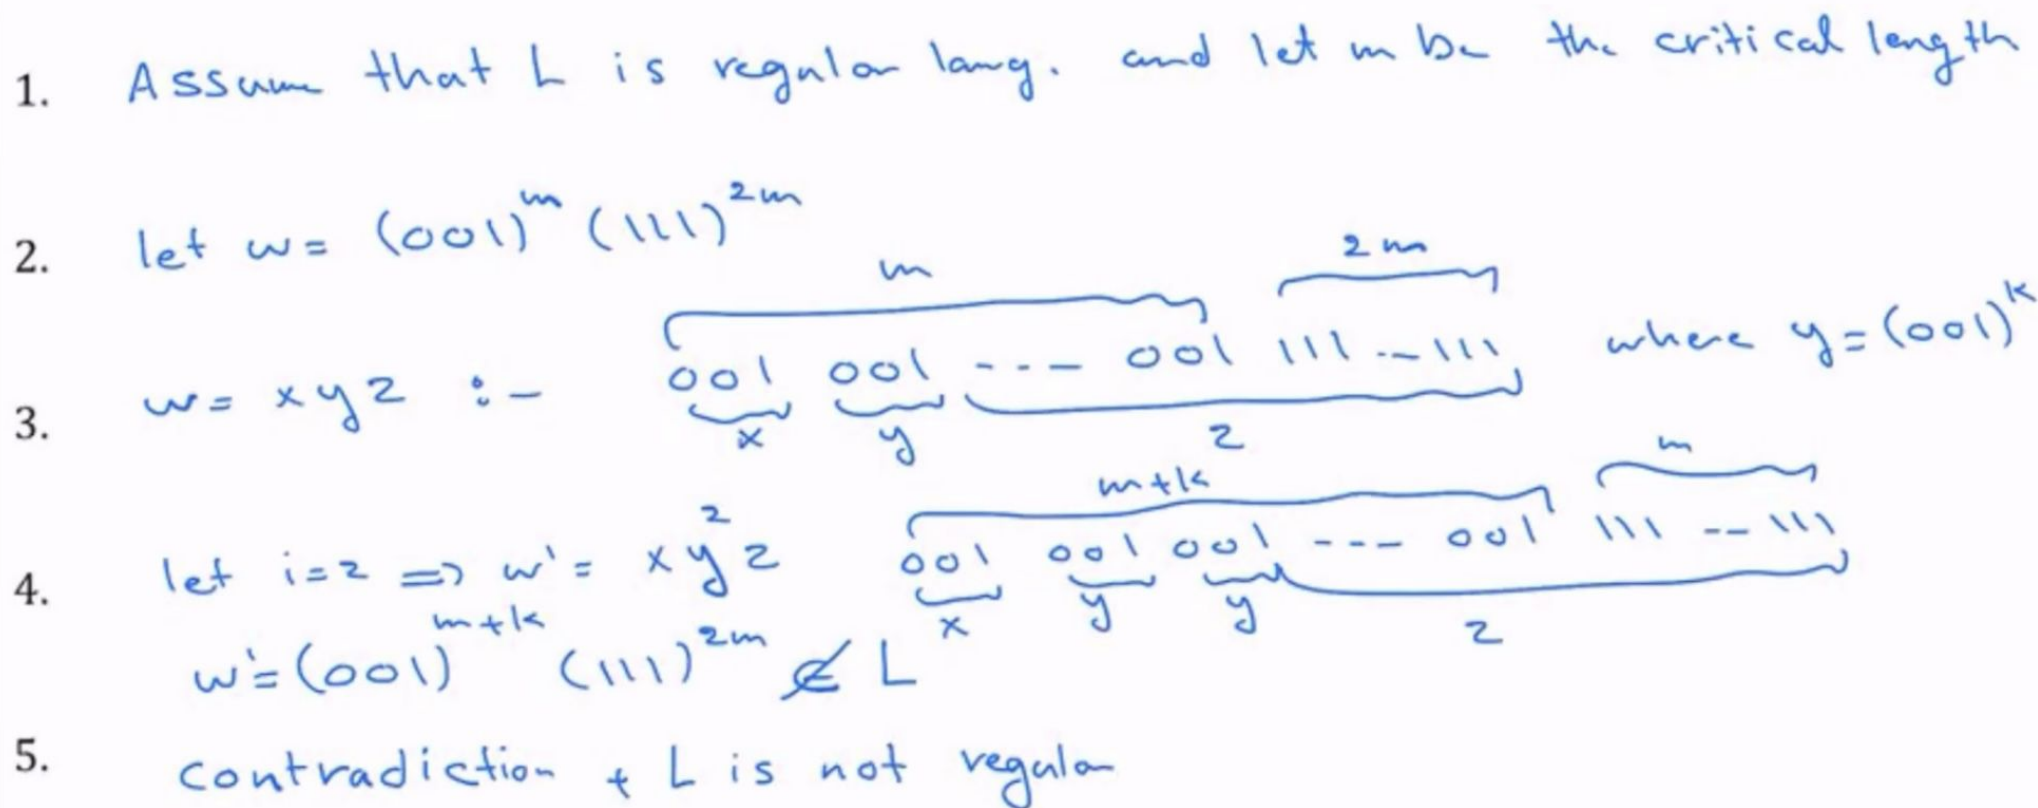 1. Assume that L is regular lang. and let m be the critical length
2. let w = (001)^m (111)^2m
m 2m
3. w = xyz :- 001 001 --- 001 111 -- 111 where y = (001)^k
x y z
m+k m
4. let i=2 => w' = xy^2z 001 001 001 --- 001 111 -- 111
x y y z
w' = (001)^m+k (111)^2m ∉ L
5. contradiction + L is not regular